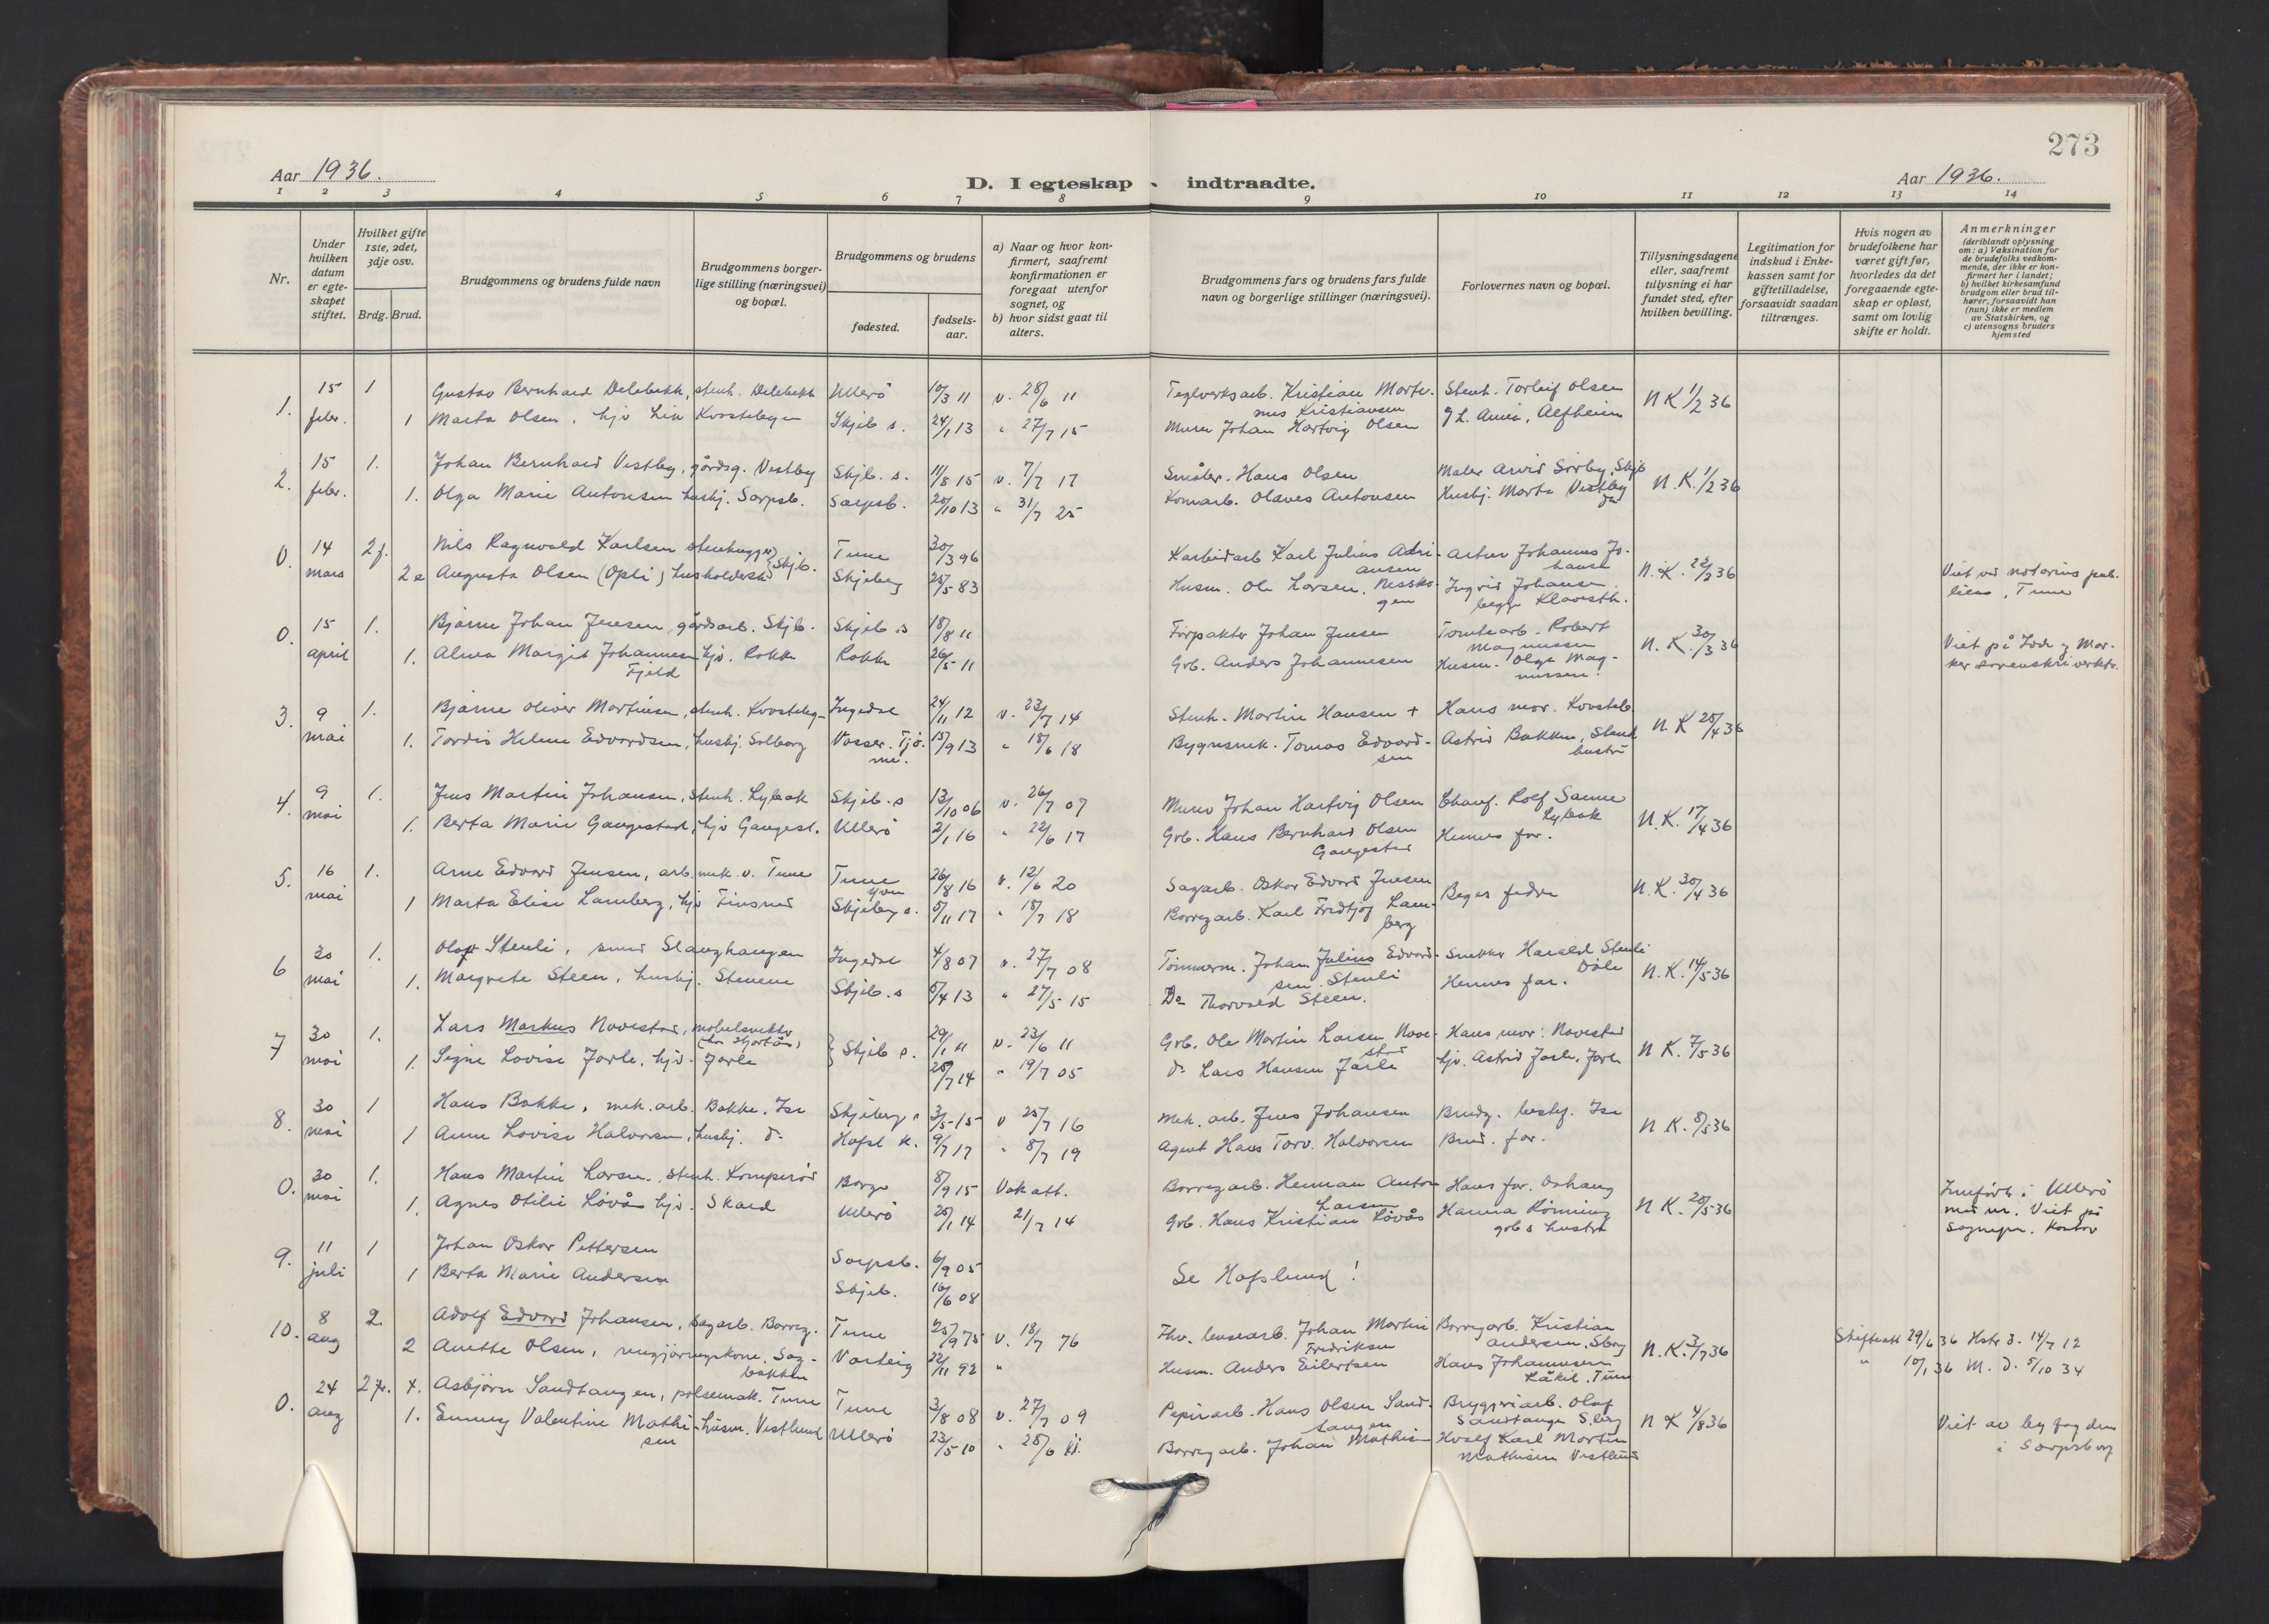 273
Aar 1936.
D. I egteskap - indtraadte.
Aar 1936.
1 2 3 4 5 6 7 8 9 10 11 12 13 14
Nr.
Under hvilken datum er egteskapet stiftet.
Hvilket gifte 1ste, 2det, 3dje osv.
Brdg. Brud.
Brudgommens og brudens fulde navn
Brudgommens borgerlige stilling (næringsvei) og bopæl.
Brudgommens og brudens
fødested.
fødselsaar.
a) Naar og hvor konfirmert, saafremt konfirmationen er foregaat utenfor sognet, og
b) hvor sidst gaat til alters.
Brudgommens fars og brudens fars fulde navn og borgerlige stillinger (næringsvei).
Forlovernes navn og bopæl.
Tillysningsdagene eller, saafremt tillysning ei har fundet sted, efter hvilken bevilling.
Legitimation for indskud i Enkekassen samt for giftetilladelse, forsaavidt saadan tiltrænges.
Hvis nogen av brudefolkene har været gift før, hvorledes da det foregaaende egteskap er opløst, samt om lovlig skifte er holdt.
Anmerkninger
(deriblandt oplysning om: a) Vaksination for de brudefolks vedkommende, der ikke er konfirmert her i landet; b) hvilket kirkesamfund brudgom eller brud tilhører, forsaavidt han (hun) ikke er medlem av Statskirken, og c) utensogns bruders hjemsted
1. 15 febr. 1 Gustav Bernhard Delebekk, stenh. Delebekk Ullerö 10/3 11 v. 28/6 11 Teglverksarb. Kristian Martinus Kristiansen Stenh. Torleif Olsen N K 1/2 36
1 Marta Olsen, hjv Lin Kvastebyen Skjeb s. 24/1 13 " 27/7 15 Murer Johan Hartvig Olsen
2. 15 febr. 1. Johan Bernhard Vestby, gårdsg. Vestby Skjb. s. 11/8 15 v. 7/7 17 Småbr. Hans Olsen Maler Arvid Sörby, Skjb N.K. 1/2 36
1. Olga Marie Antonsen husbj. Sarpsb. Sarpsb. 20/10 13 " 31/7 25 Komarb. Olaves Antonsen Husbj. Marta Vestby
0. 14 mars 2 f. Nils Ragnvald Karlsen stenhugger Skjb. Tune 30/3 96 Karbidarb Karl Julius Adriansen Artur Johannes Johansen N.K. 22/2 36 Viet ved notarius publicus, Tune
2 e Augusta Olsen (Opli) husholderske Skjeberg 25/5 83 Husm. Ole Larsen, Nesskogen Ingrid Johansen begge Klavesth.
0. 15 april 1. Bjarne Johan Jensen gårdsarb. Skjb. Skjeb. s 18/8 11 Forpakter Johan Jensen Tomtearb. Robert Magnussen N. K. 30/3 36 Viet på Idde og Marker sorenskriverktr.
1. Alma Margit Johannesen Fjeld hjv. Rokke Rokke 26/5 11 Grb. Anders Johannesen Husm. Olga Magnussen.
3. 9 mai 1. Bjarne Oliver Martinsen, stenh. Kvasteby- Ingedal 24/11 12 v. 23/7 14 Stenh. Martin Hansen + Hans mor. Kvasteb N K 25/4 36
1. Tordis Helene Edvardsen, husbj. Solborg Vasser. Tjöme. 15/9 13 " 18/6 18 Bygnsnek. Tomas Edvardsen Astrid Bakken, Stenh hustru
4. 9 mai 1. Jens Martin Johansen, stenh. Lybæk Skjeb. s 13/10 06 v. 26/7 07 Murer Johan Hartvig Olsen Chauf. Rolf Sanne Lybæk N.K. 17/4 36
1. Berta Marie Gangestad, hjv Gangest. Ullerö 2/1 16 " 22/6 17 Grb. Hans Bernhard Olsen Gangestad Hennes far.
5. 16 mai 1. Arne Edvard Jensen, arb. mek. v. Tune Tune 26/8 16 v. 12/6 20 Sagarb. Oskar Edvard Jensen Beges fedre N.K. 30/4 36
1 Marta Elise Lamberg, hjv Finsrud Skjeberg s. 5/11 17 " 18/7 18 Borregarb. Karl Fredtjof Lamberg
6 30 mai 1. Olaf Stenli, smed Slanghaugen Ingedal 4/8 07 v. 27/7 08 Tömmerm. Johan Julius Edvardsen Stenli Snekker Harald Stenli Döle N.K. 14/5 36
1. Margrete Steen, husbj. Stenene Skjeb. s 5/4 13 " 27/5 15 Do Thorvald Steen. Hennes far.
7 30 mai 1. Lars Markus Navestad, möbelsnekker Skjeb s. 29/1 11 v. 23/6 11 Grb. Ole Martin Larsen Navestad Hans mor: Navestad N K. 7/5 36
1. Signe Lovise Jarle, hjv. Jarle 25/7 14 " 19/7 05 do Lars Hansen Jarle hjv. Astrid Jarle, Jarle
8. 30 mai 1 Hans Bakke, mek. arb. Bakke. Ise Skjeberg s 3/5 15 v 25/7 16 Mek. arb. Jens Johansen Brudg. beskj. Ise N K. 8/5 36
1 Anne Lovise Halvorsen, husbj. do Hafsl k. 9/7 17 " 8/7 19 Agent Hans Torv. Halvorsen Brud. far.
0. 30 mai 1. Hans Martin Larsen, stenh. Kamperöd Borge 8/9 15 Vak att. Borregarb. Herman Anton Larsen Hans far. N K. 20/5 36 Innført i Ullerö med nr. Viet på sognepr. kontor
1. Agnes Otilie Lövås hjv. Skard Ullerö 25/1 14 21/7 14 Grb. Hans Kristian Lövås Hanna Rönning grb s hustru
9. 11 juli 1 Johan Oskar Pettersen Sarpsb. 6/9 05
1 Berta Marie Andersen Skjeb. 16/6 08 Se Hafslund!
10. 8 aug 2. Adolf Edvard Johansen, sagarb. Borreg. Tune 25/9 75 v. 18/7 76 Fhv. lensearb. Johan Martin Fredriksen Borregarb. Kristian Andersen, Sbrg N.K. 3/7 36 Skifteatt 29/6 36 Hstr d. 14/7 12
2 Anette Olsen, rengjöringskone, Sagbakken Varteig 22/11 92 " Husm. Anders Eilertsen Hans Johannesen Råkil. Tune " 10/1 36 M. d. 5/10 34
0. 24 aug 2 fr. +. Asbjörn Sandtangen, pölsemak. Tune Tune 3/8 08 v. 27/7 09 Papirarb. Hans Olsen Sandtangen Bryggeriarb. Olaf Sandtangen S.berg N K 4/8 36 Viet av byfogden i Sarpsborg
1. Emmy Valentine Mathisen husm. Vestlund Ullerö 23/5 10 " 28/6 11. Borregarb. Johan Mathisen Hvalf Karl Martin Mathisen Vestlund